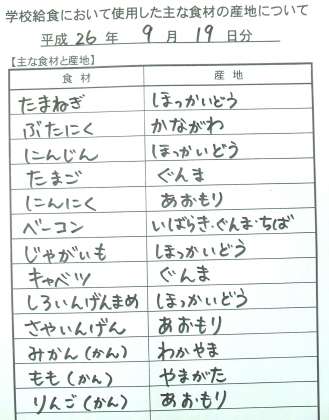 学校給食において使用した主な食材の産地について
平成 26 年 9 月 19 日分
【主な食材と産地】
食 材 産 地
たまねぎ ほっかいどう
ぶたにく かながわ
にんじん ほっかいどう
たまご ぐんま
にんにく あおもり
ベーコン いばらき・ぐんま・ちば
じゃがいも ほっかいどう
キャベツ ぐんま
しろいんげんまめ ほっかいどう
さやいんげん あおもり
みかん(かん) わかやま
もも(かん) やまがた
りんご(かん) あおもり